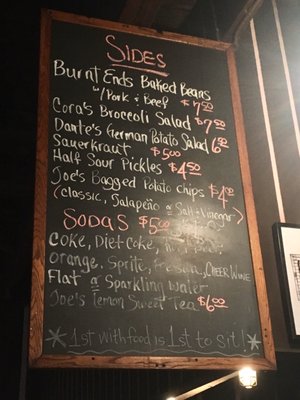 SIDES
Burnt Ends Baked Beans
w/Pork & Beef $7.00
Cora's Broccoli Salad $7.00
Dante's German Potato Salad 6.00
Sauerkraut $5.00
Half Sour Pickles $4.50
Joe's Bagged Potato Chips $4.00
(Classic, Jalapeño or Salt & Vinegar)
SODAS $5.00
COKE, Diet-Coke,
orange, Sprite, CHEERWINE
Flat or Sparkling water
Joe's Lemon Sweet Tea $6.00
1st with food is 1st to sit!